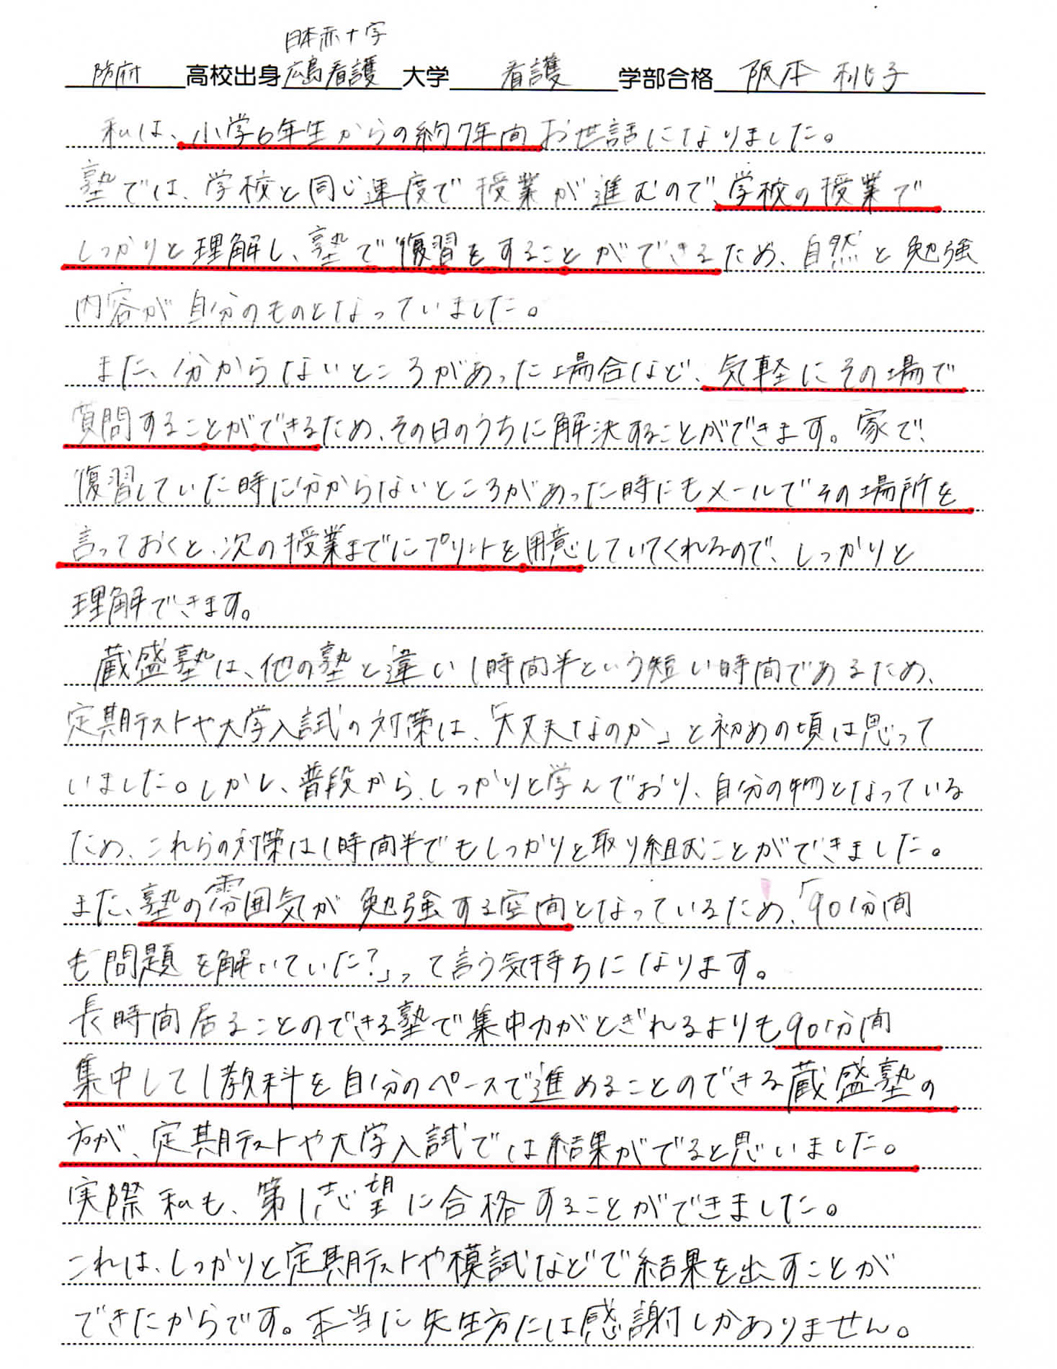 日本赤十字
防府 高校出身 広島看護 大学 看護 学部合格 阪本 桃子
私は、小学6年生からの約7年間お世話になりました。
塾では、学校と同じ速度で授業が進むので、学校の授業で
しっかりと理解し、塾で復習をすることができるため、自然と勉強
内容が自分のものとなっていました。
また、分からないところがあった場合など、気軽にその場で
質問することができるため、その日のうちに解決することができます。家で
復習していた時に分からないところがあった時にもメールでその場所を
言っておくと、次の授業までにプリントを用意していてくれるので、しっかりと
理解できます。
蔵盛塾は、他の塾と違い1時間半という短い時間であるため、
定期テストや大学入試の対策は、「大丈夫なのか」と初めの頃は思って
いました。しかし、普段から、しっかりと学んでおり、自分の物となっている
ため、これらの対策は1時間半でもしっかりと取り組むことができました。
また、塾の雰囲気が勉強する空間となっているため、「90分間
も問題を解いていた?」って言う気持ちになります。
長時間居ることのできる塾で集中力がとぎれるよりも90分間
集中して1教科を自分のペースで進めることのできる蔵盛塾の
方が、定期テストや大学入試では結果がでると思いました。
実際私も、第1志望に合格することができました。
これは、しっかりと定期テストや模試などで結果を出すことが
できたからです。本当に先生方には感謝しかありません。